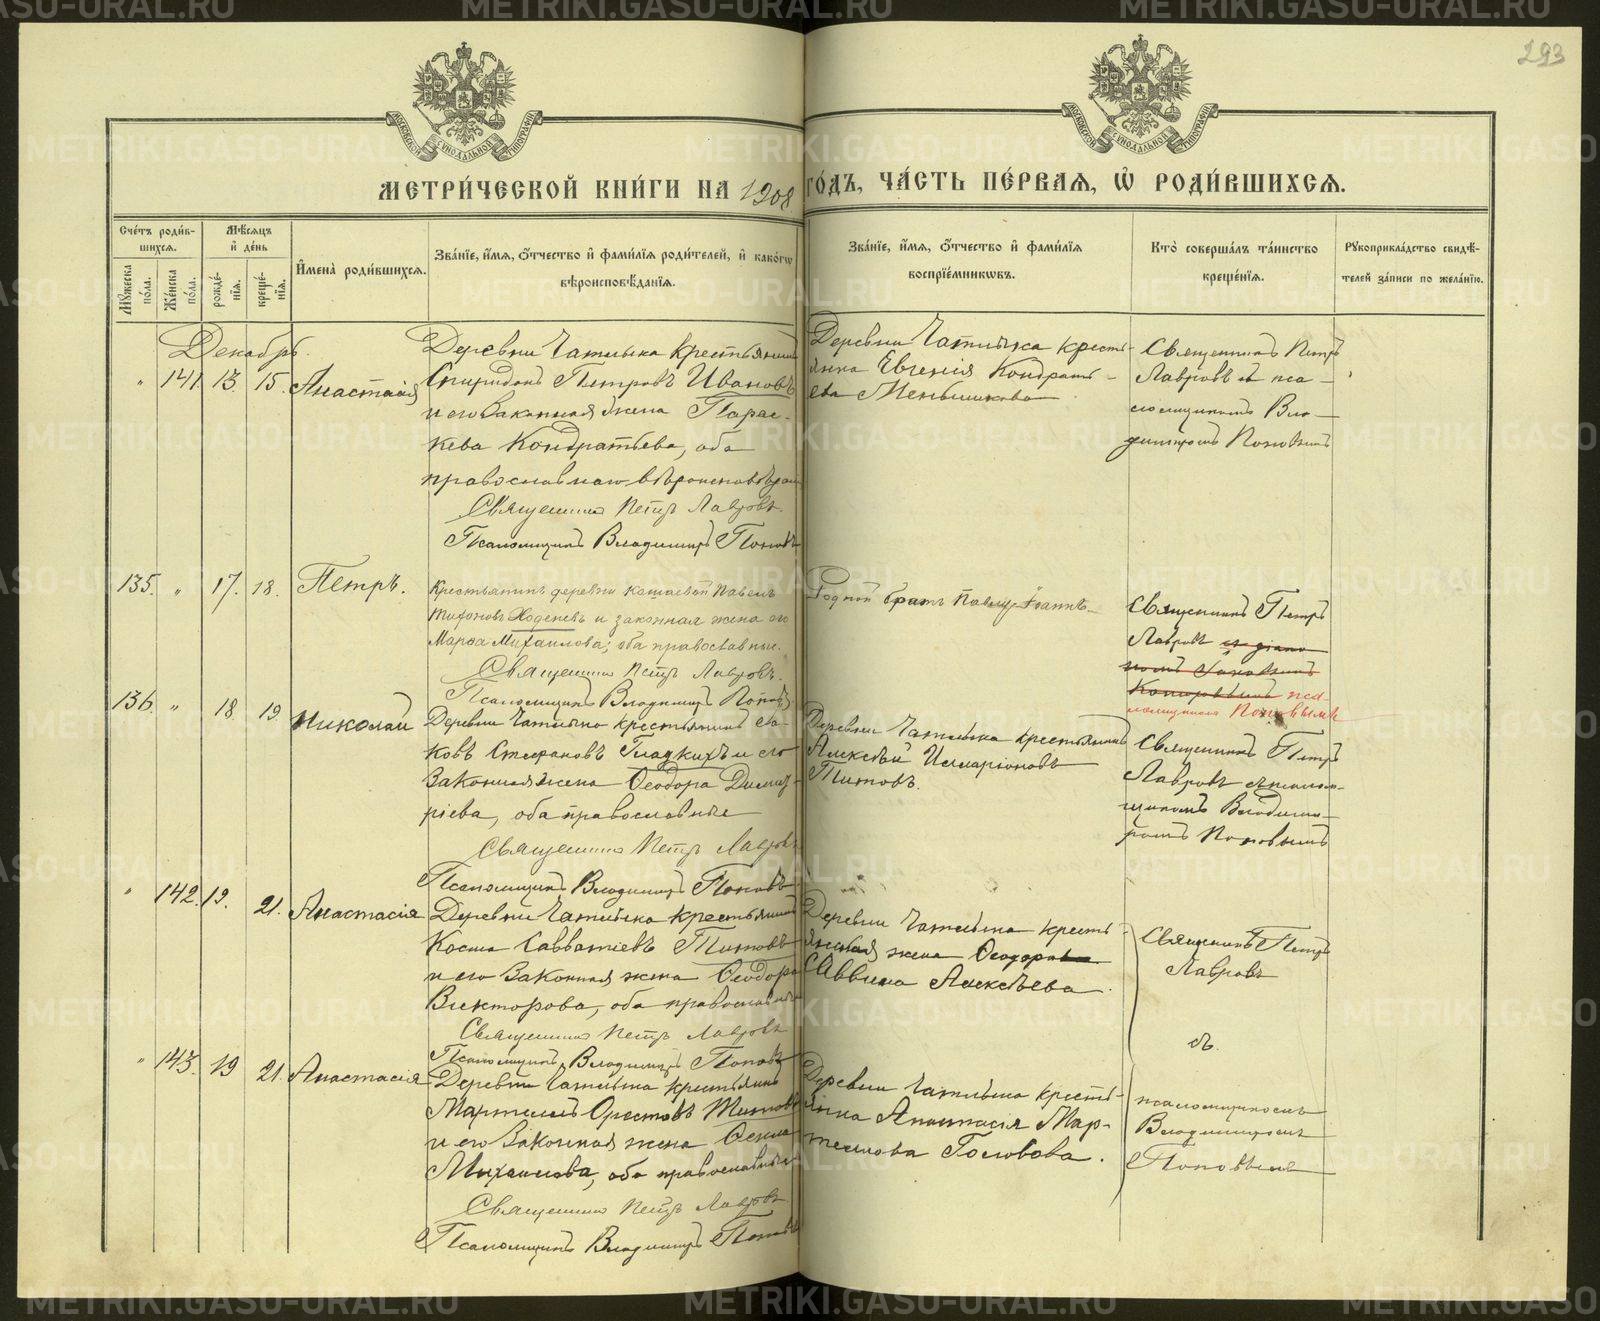 293
МОСКОВСКОЙ СѴНОДАЛЬНОЙ ТИПОГРАФІИ
МОСКОВСКОЙ СѴНОДАЛЬНОЙ ТИПОГРАФІИ
МЕТРИ́ЧЕСКОЙ КНИ́ГИ НА 1908 ГО́ДЪ, ЧА́СТЬ ПЕ́РВАЯ, Ѽ РОДИ́ВШИХСЯ.
Сче́тъ роди́в-
шихся.
Мꙋжеска по́ла.
Же́нска по́ла.
Мѣ́сяцъ
и҆ де́нь
рожде́нїя.
креще́нїя.
И҆мена̀ роди́вшихся.
Зва́нїе, и҆́мя, ѻ҆́тчество и҆ фами́лїя роди́телей, и҆ како́гѡ
вѣроисповѣ́данїя.
Зва́нїе, и҆́мя, ѻ҆́тчество и҆ фами́лїя
воспрїе́мниковъ.
Кто̀ соверша́лъ та́инство
креще́нїя.
Рꙋкоприкла́дство свидѣ́-
телей за́писи по жела́нїю.
Декабрь.
" 141. 13. 15. Анастасія
Деревни Чатлыка крестьянинъ
Спиридонъ Петровъ Ивановъ
и его законная жена Парас-
кева Кондратьева, оба
православнаго вѣроисповѣдан
Священникъ Петръ Лавровъ.
Псаломщикъ Владимиръ Поповъ
Деревни Чатлыка кресть-
янка Евгенія Кондрать-
ева Меньшикова
Священникъ Петръ
Лавровъ съ пса-
ломщикомъ Вла-
димиромъ Поповымъ
135. " 17. 18. Петръ.
Крестьянинъ деревни Кашаевой Павелъ
Тихоновъ и законная жена его
Марѳа Михаилова; оба православные.
Священникъ Петръ Лавровъ.
Псаломщикъ Владимиръ Поповъ
Родной братъ Павлу Іоаннъ
Священникъ Петръ
Лавровъ
пса-
ломщикомъ Поповымъ
136. " 18. 19. Николай
Деревни Чатлыка крестьянинъ Іа-
ковъ Стефановъ Гладкихъ и его
законная жена Ѳеодора Димит-
ріева, оба православные
Священникъ Петръ Лавровъ
Псаломщикъ Владимиръ Поповъ
Деревни Чатлыка крестьянинъ
Алексѣй Илларіоновъ
Титовъ.
Священникъ Петръ
Лавровъ съ псалом-
щикомъ Владими-
ромъ Поповымъ
" 142. 19. 21. Анастасія
Деревни Чатлыка крестьянинъ
Косма Савватіевъ Титовъ
и его законная жена Ѳеодора
Викторова, оба православные
Священникъ Петръ Лавровъ
Псаломщикъ Владимиръ Поповъ
Деревни Чатлыка кресть-
янская жена Ѳеодора
Саввина Алексѣева.
Священникъ Петръ
Лавровъ
съ
" 143. 19 21. Анастасія
Деревни Чатлыка крестьянинъ
Мартемъ Орестовъ Титовъ
и его законная жена
Михаилова, оба православные
Священникъ Петръ Лавровъ
Псаломщикъ Владимиръ Поповъ
Деревни Чатлыка кресть-
янка Анастасія Мар-
темлова Головова.
псаломщикомъ
Владимиромъ
Поповымъ
METRIKI.GASO-URAL.RU